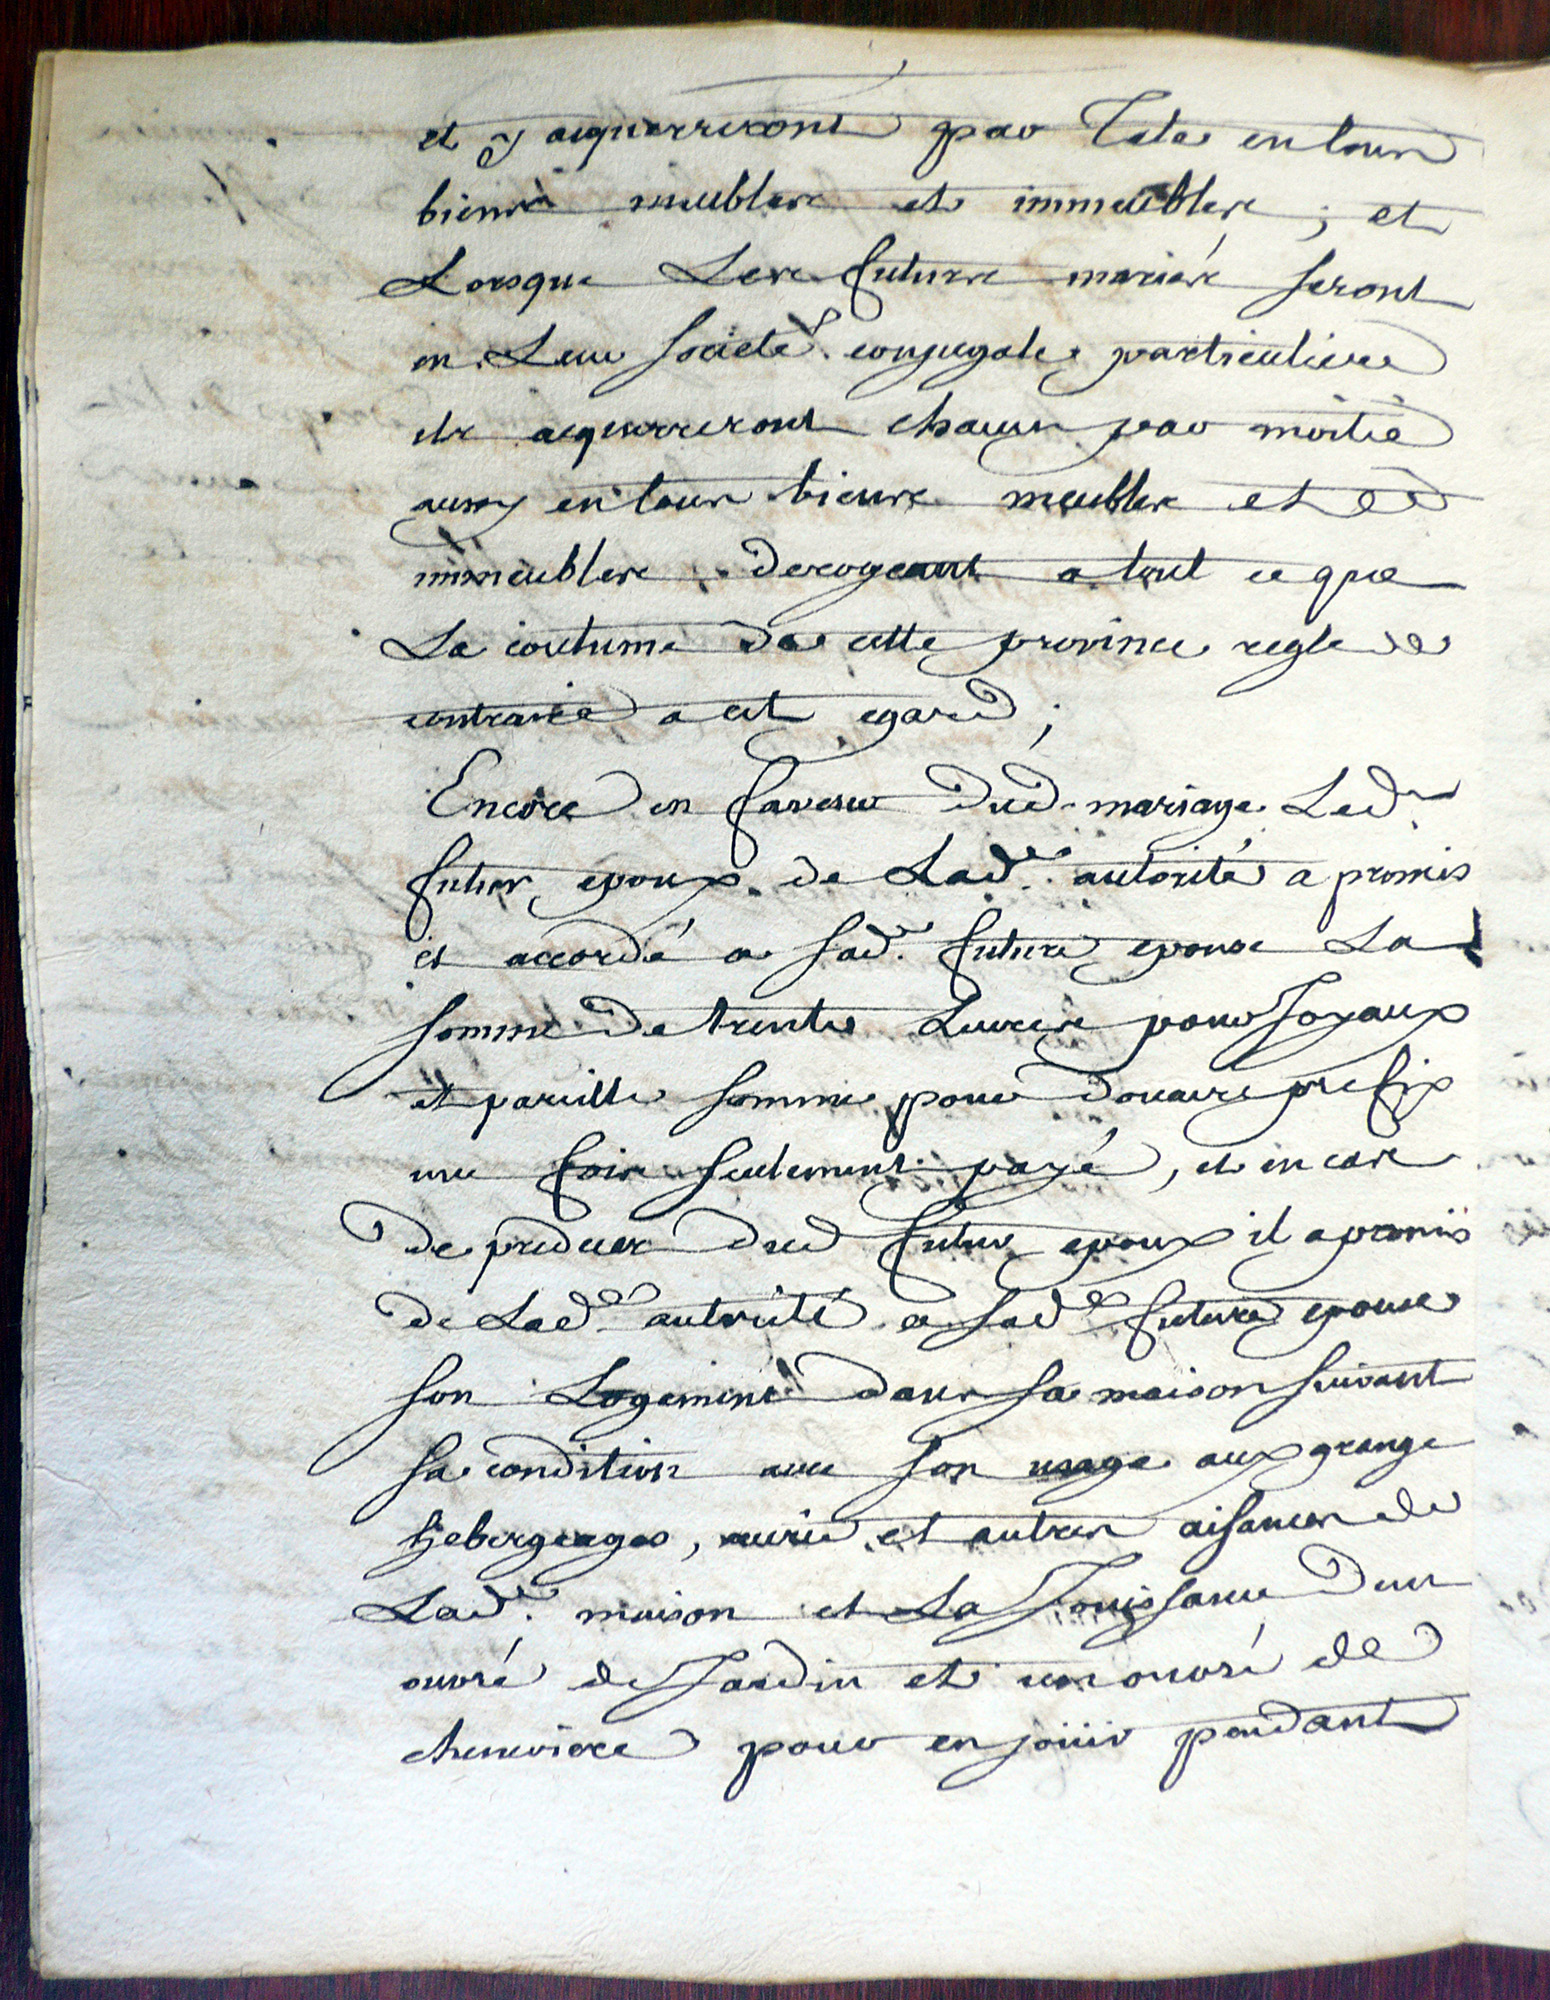 et y acquerreront par Tete en tous
biens meubles et immeubles ; et
Lorsque Les futurs mariés seront
en Leur societé conjugale particuliere
ils acquerreront chacun par moitié
aussy en tous biens meubles et
immeubles derogeant a tout ce que
La coutume de cette province regle de
contraire a cet egard ;
Encore en faveur dud. mariage Led.
futur epoux de Lad.e autorité a promis
et accordé a sad.e future epouse La
somme de trente Livres pour Joyaux
et pareille somme pour douaire prefix
une fois seulement payé, et en cas
de predeces dud futur epoux il a promis
de Lad.e autorité a sad.e future epouse
son Logement dans sa maison suivant
sa condition avec son usage aux grange
hebergeages, ecurie et autres aisances de
Lad.e maison et La Jouissance d'un
ouvré de Jardin et un ouvré de
cheneviere pour en joüir pendant